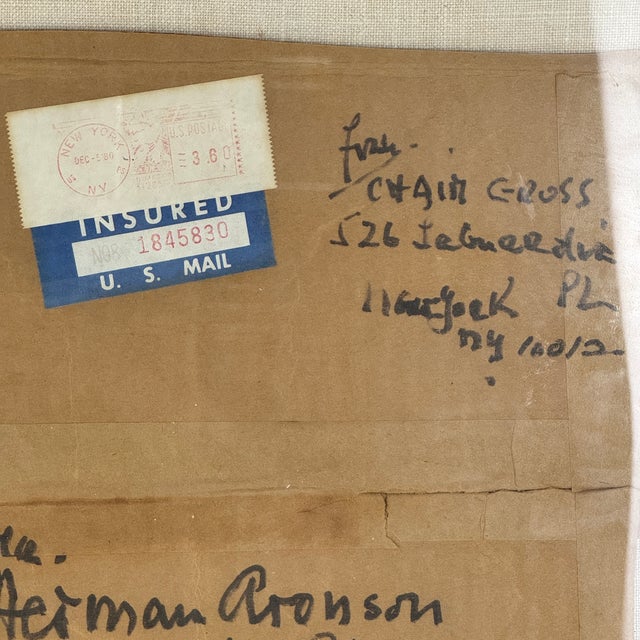 NEW YORK
DEC-5'80
NY
U.S. POSTAGE
3.60
INSURED
NO8 1845830
U. S. MAIL
from
CHAIM GROSS
526 LaGuardia
New York PL
NY 10012
Herman Aronson